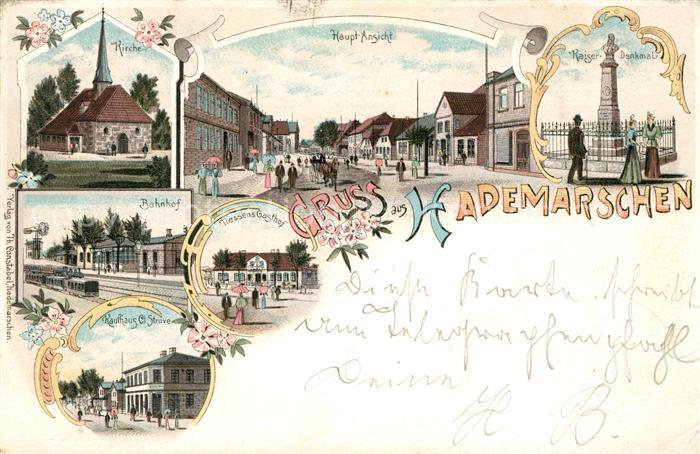 Kirche
Haupt-Ansicht
Kaiser-Denkmal
Bahnhof
Tiessens Gasthof
GRUSS aus HADEMARSCHEN
Kaufhaus Cl. Struve
Verlag von Th. Constabel, Hademarschen.
Diese Karte schreibt
am Telegraphenpfahl
Deine
H. B.